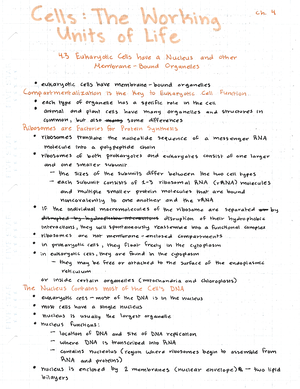 Cells: The Working
Ch 4
Units of Life
4.3 Eukaryotic Cells have a Nucleus and other
Membrane-Bound Organelles
• eukaryotic cells have membrane-bound organelles
Compartmentalization is the Key to Eukaryotic Cell Function.
• each type of organelle has a specific role in the cell
• animal and plant cells have many organelles and structures in
common, but also many some differences
Ribosomes are Factories for Protein Synthesis
• ribosomes translate the nucleotide sequence of a messenger RNA
molecule into a polypeptide chain
• ribosomes of both prokaryotes and eukaryotes consist of one larger
and one smaller subunit
– the sizes of the subunits differ between the two cell types
– each subunit consists of 1-3 ribosomal RNA (rRNA) molecules
and multiple smaller protein molecules that are bound
noncovalently to one another and the rRNA
• if the individual macromolecules of the ribosome are separated by
disrupted by hydrophobic interactions disruption of their hydrophobic
interactions, they will spontaneously reassemble into a functional complex
• ribosomes are not membrane-enclosed compartments
• in prokaryotic cells, they float freely in the cytoplasm
• in eukaryotic cells, they are found in the cytoplasm
– they may be free or attached to the surface of the endoplasmic
reticulum
or inside certain organelles (mitochondria and chloroplasts)
The Nucleus contains most of the Cell's DNA
• eukaryotic cells – most of the DNA is in the nucleus
• most cells have a single nucleus
• nucleus is usually the largest organelle
• nucleus functions:
– location of DNA and site of DNA replication
– where DNA is transcribed into RNA
– contains nucleolus (region where ribosomes begin to assemble from
RNA and proteins)
• nucleus is enclosed by 2 membranes (nuclear envelope) – two lipid
bilayers